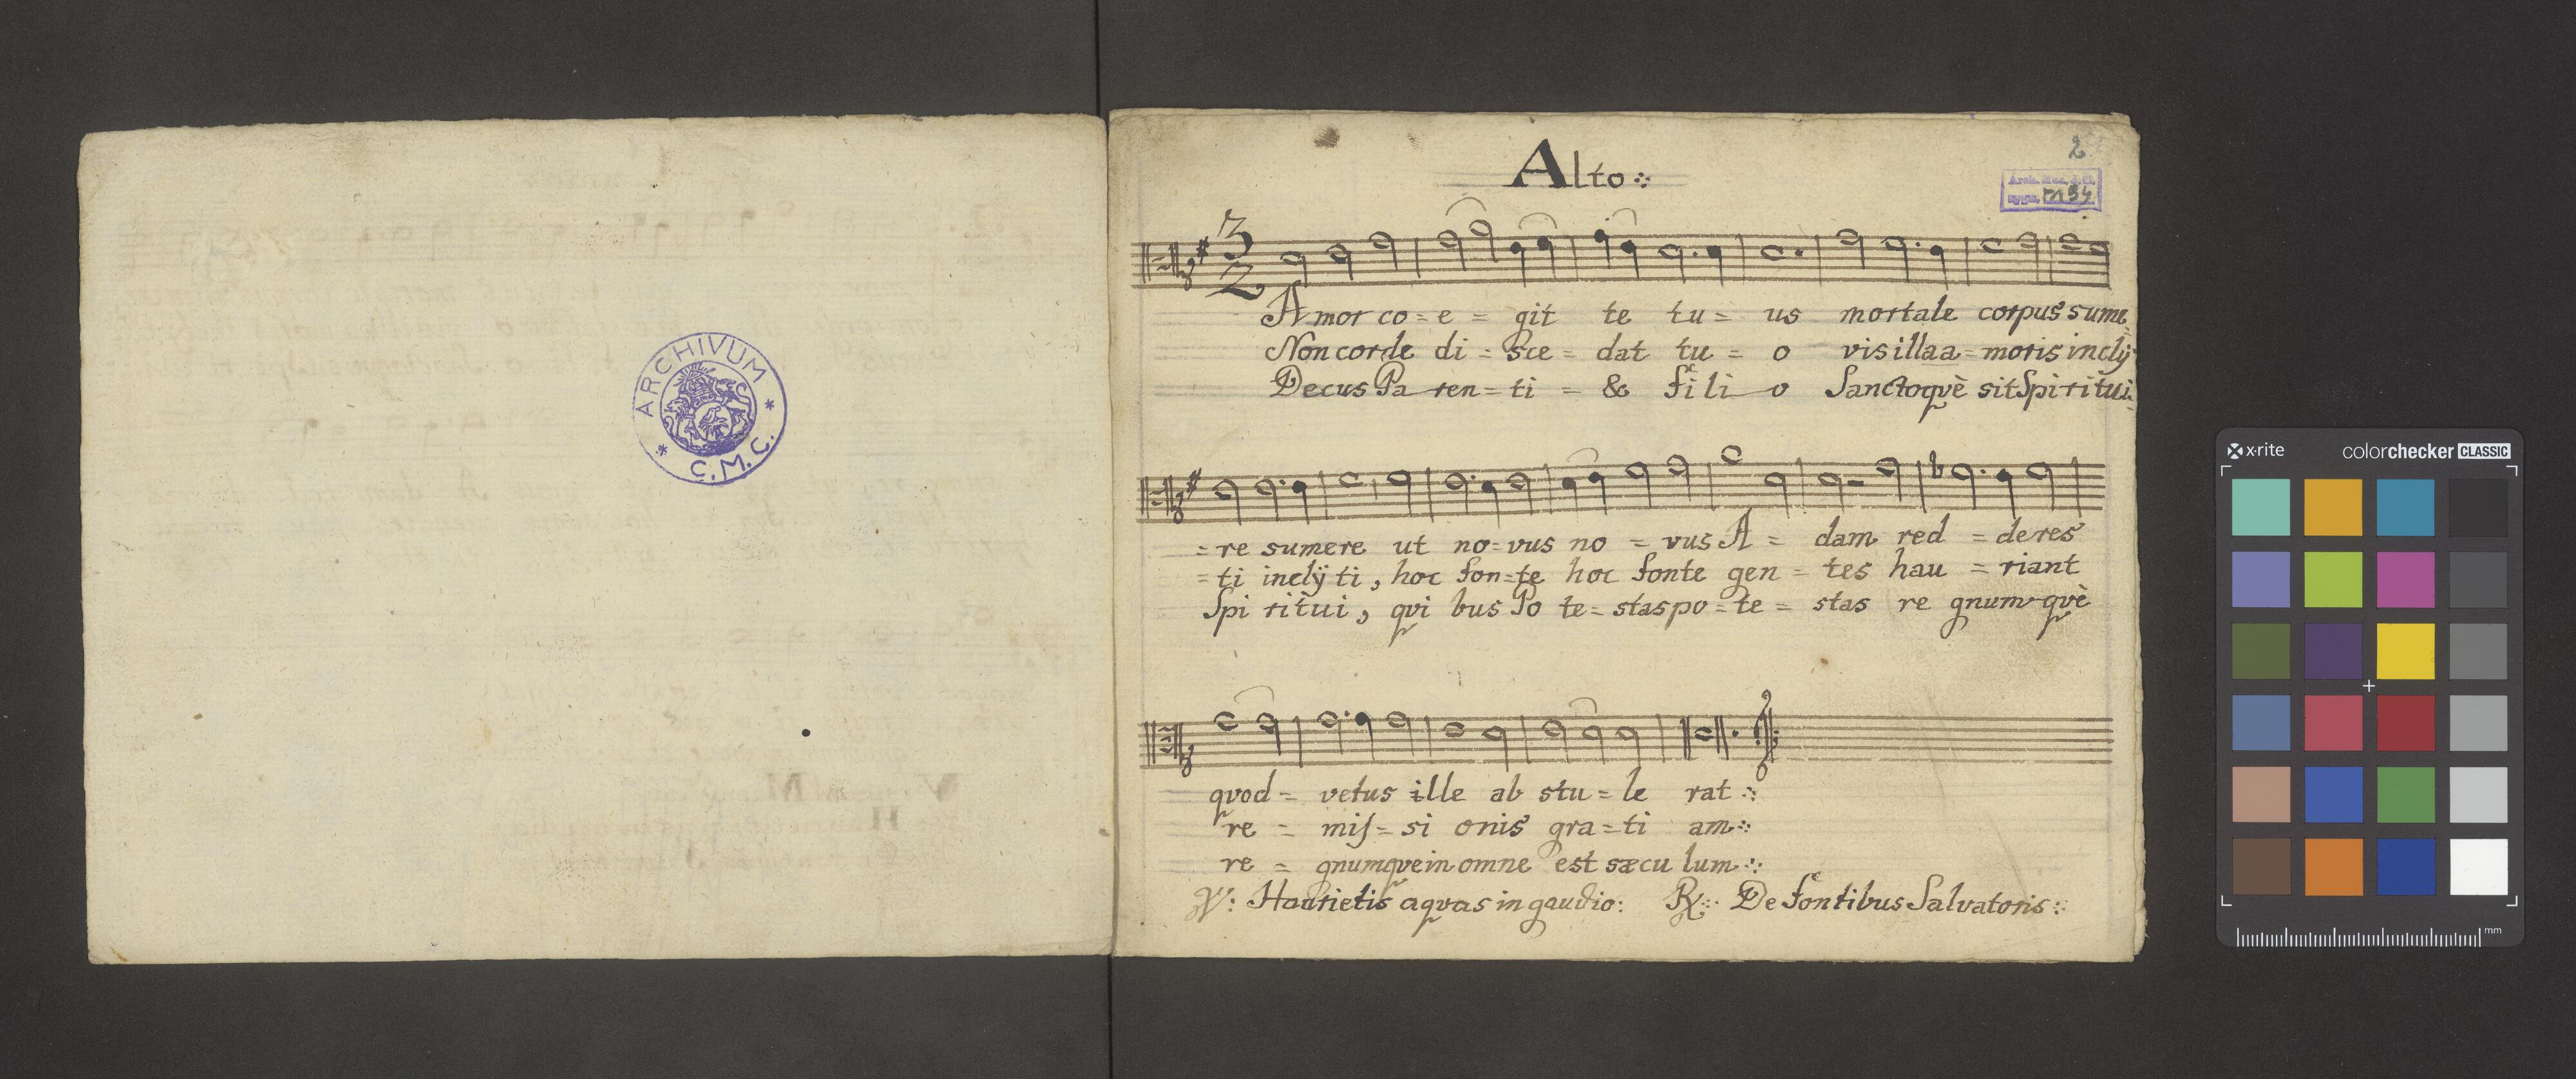 ARCHIVUM * C.M.C. *
2
Alto
m 94
3
2
Amor co=e = git te tu = us mortale corpus sume
Non corde di = sce = dat tu = o vis illa a=moris inclÿ
Decus Pa ren=ti = & fi li o Sanctoqvè sit Spiritui
=re sumere ut no=vus no = vus A = dam red = deres
=ti inclÿ ti, hoc fon=te hoc fonte gen = tes hau = riant
Spi ritui, qvi bus Po te=stas po=te = stas re gnum qvè
qvod = vetus ille ab stu=le rat
re = mis=si onis gra=ti am
re = gnumqve in omne est sæcu lum
℣: Haurietis aqvas in gaudio: ℟: De fontibus Salvatoris:
x-rite
colorchecker CLASSIC
mm